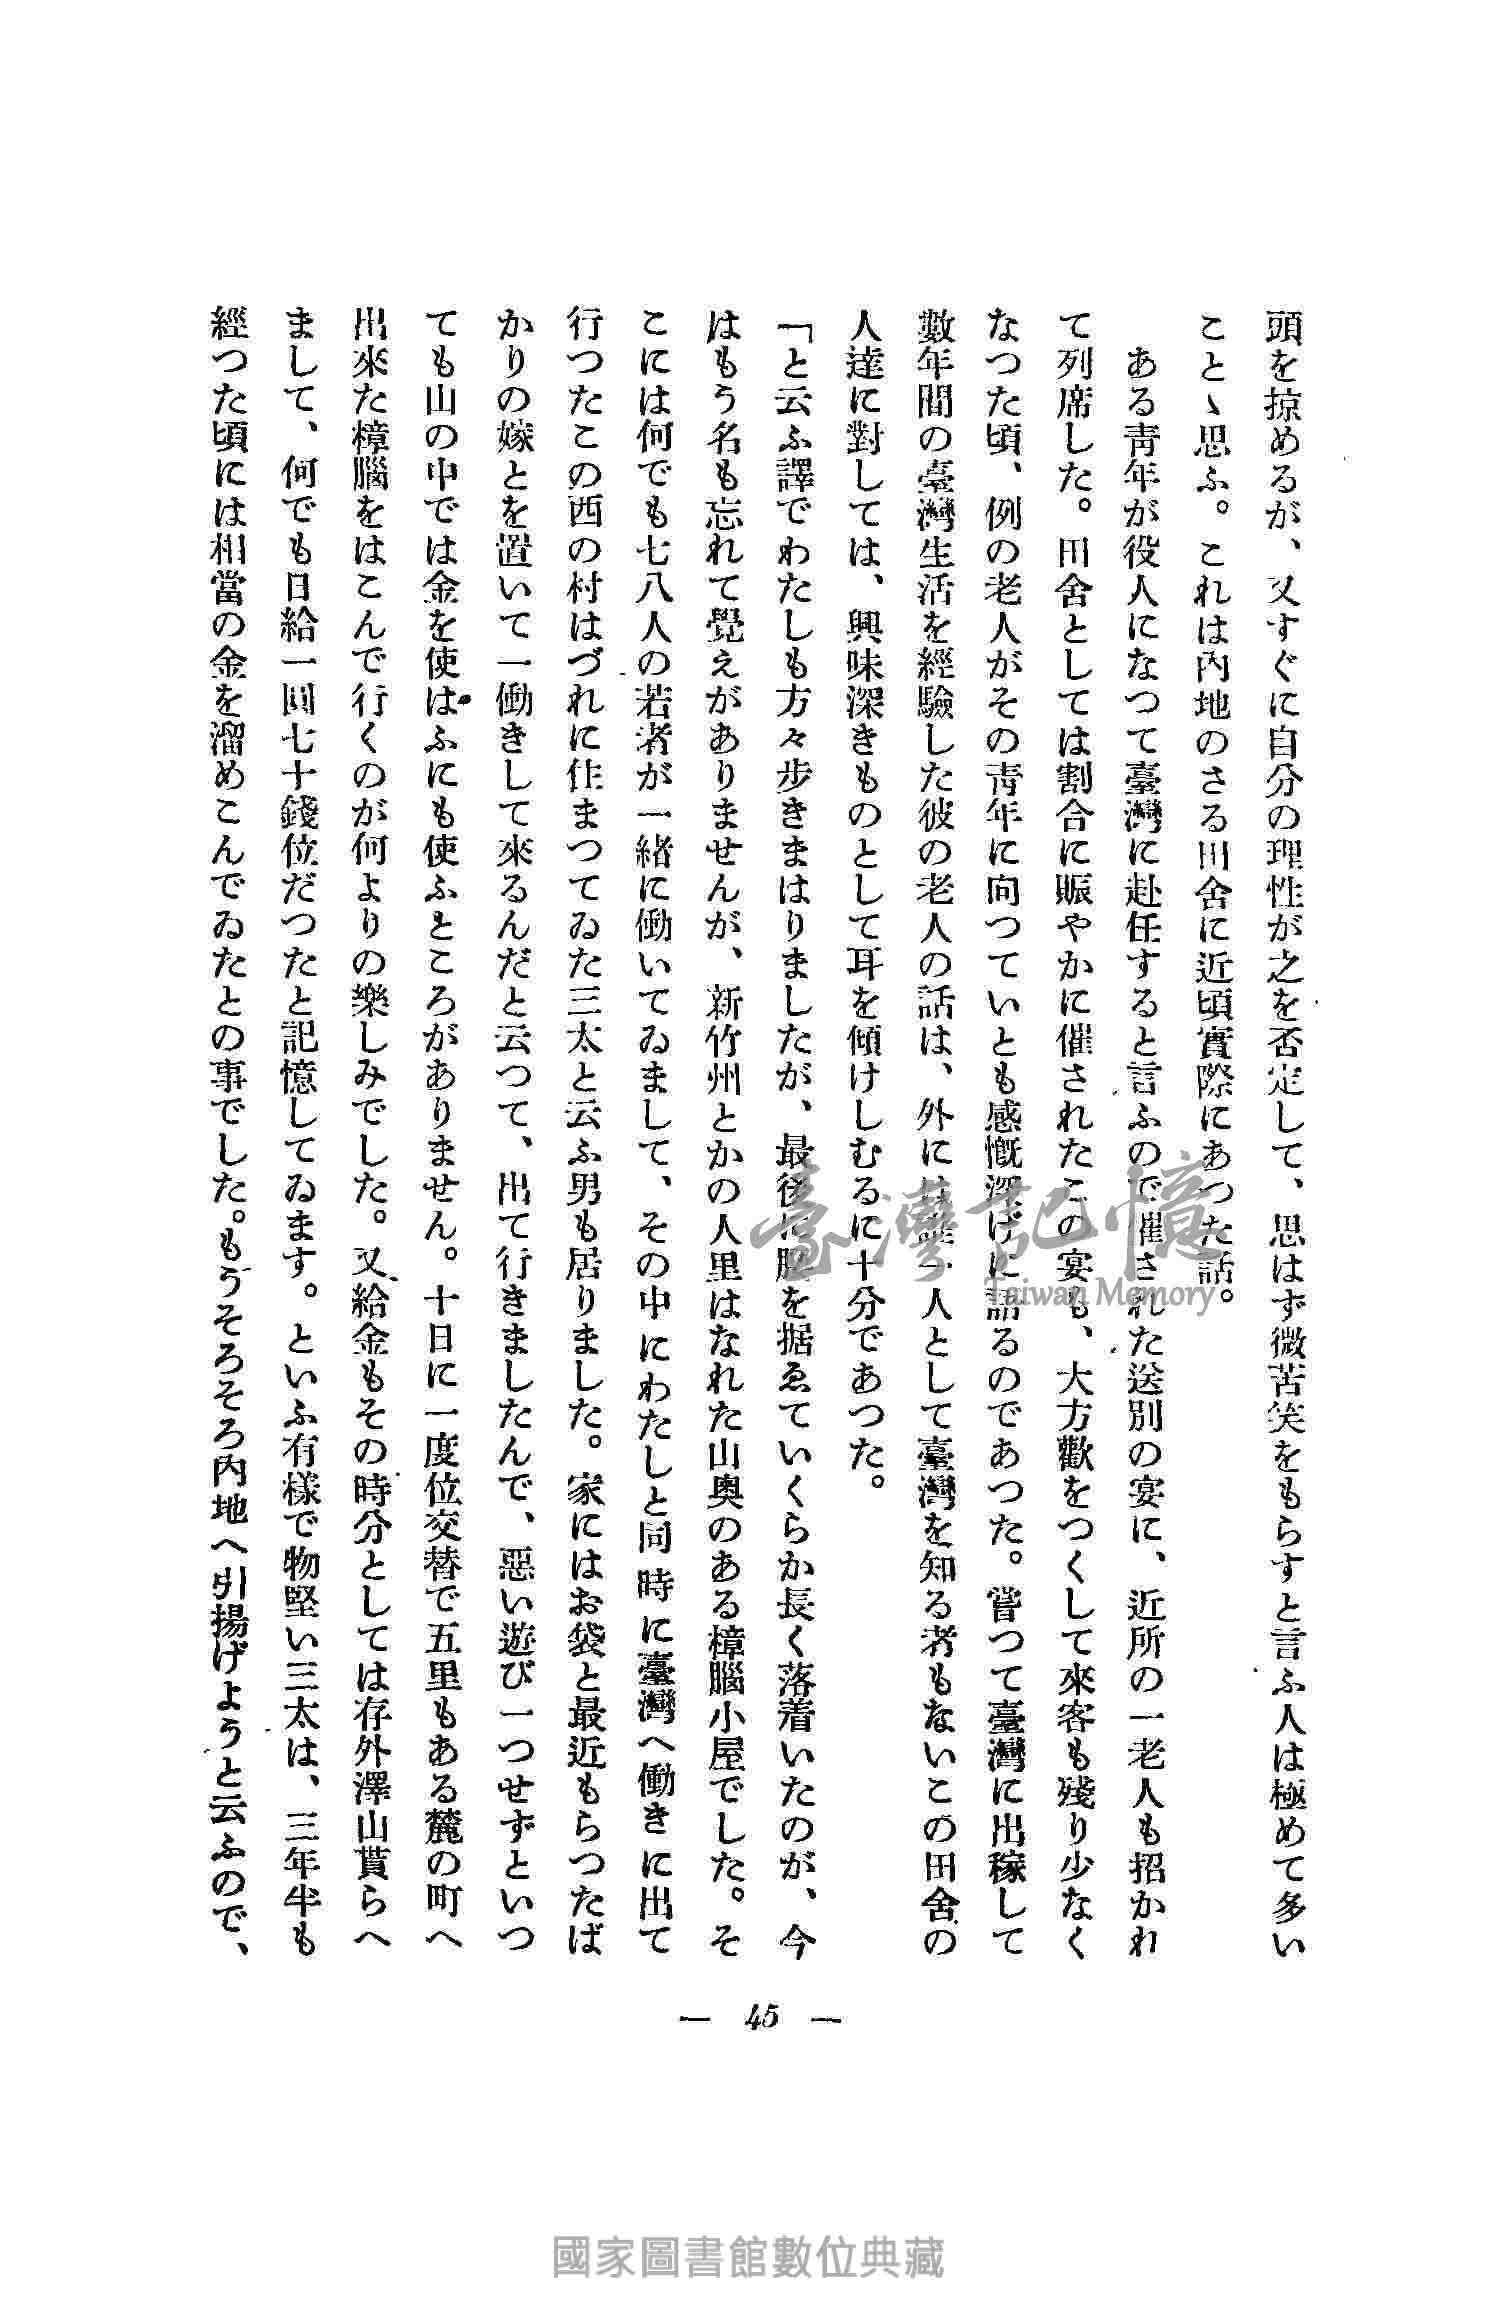 頭を掠めるが、又すぐに自分の理性が之を否定して、思はず微苦笑をもらすと言ふ人は極めて多い
ことゝ思ふ。これは内地のさる田舎に近頃實際にあつた話。
ある靑年が役人になつて臺灣に赴任すると言ふので催された送別の宴に、近所の一老人も招かれ
て列席した。田舎としては割合に賑やかに催されたこの宴も、大方歡をつくして來客も殘り少なく
なつた頃、例の老人がその靑年に向つていとも感慨深げに語るのであつた。嘗つて臺灣に出稼して
數年間の臺灣生活を經驗した彼の老人の話は、外には誰一人として臺灣を知る者もないこの田舎の
人達に對しては、興味深きものとして耳を傾けしむるに十分であつた。
「と云ふ譯でわたしも方々步きまはりましたが、最後に腰を据ゑていくらか長く落着いたのが、今
はもう名も忘れて覺えがありませんが、新竹州とかの人里はなれた山奧のある樟腦小屋でした。そ
こには何でも七八人の若者が一緒に働いてゐまして、その中にわたしと同時に臺灣へ働きに出て
行つたこの西の村はづれに住まつてゐた三太と云ふ男も居りました。家にはお袋と最近もらつたば
かりの嫁とを置いて一働きして來るんだと云つて、出て行きましたんで、惡い遊び一つせずといつ
ても山の中では金を使はふにも使ふところがありません。十日に一度位交替で五里もある麓の町へ
出來た樟腦をはこんで行くのが何よりの樂しみでした。又給金もその時分としては存外澤山貰らへ
まして、何でも日給一圓七十錢位だつたと記憶してゐます。といふ有樣で物堅い三太は、三年半も
經つた頃には相當の金を溜めこんでゐたとの事でした。もうそろそろ內地へ引揚げようと云ふので、
— 45 —
臺灣記憶
Taiwan Memory
國家圖書館數位典藏